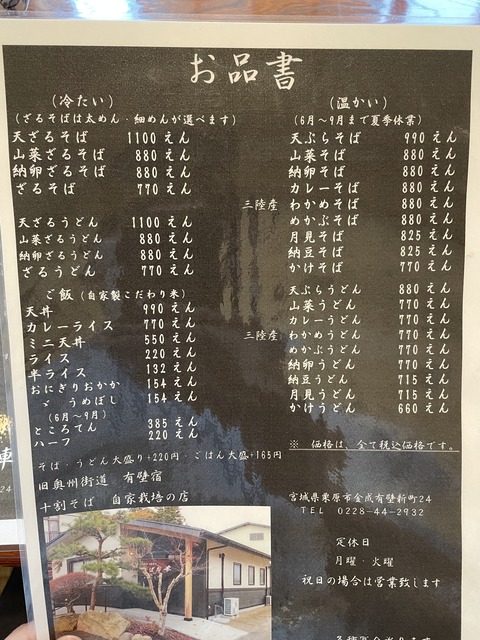 お品書
(冷たい)
(ざるそばは太めん・細めんが選べます)
天ざるそば 1100 えん
山菜ざるそば 880 えん
納卵ざるそば 880 えん
ざるそば 770 えん
天ざるうどん 1100 えん
山菜ざるうどん 880 えん
納卵ざるうどん 880 えん
ざるうどん 770 えん
ご飯 (自家製こだわり米)
天丼 990 えん
カレーライス 770 えん
ミニ天丼 550 えん
ライス 220 えん
半ライス 132 えん
おにぎりおかか 154 えん
〃 うめぼし 154 えん
(6月~9月)
ところてん 385 えん
ハーフ 220 えん
そば・うどん大盛り+220円・ごはん大盛+165円
旧奥州街道 有壁宿
十割そば 自家栽培の店
(温かい)
(6月~9月まで夏季休業)
天ぷらそば 990 えん
山菜そば 880 えん
納卵そば 880 えん
カレーそば 880 えん
三陸産 わかめそば 880 えん
めかぶそば 880 えん
月見そば 825 えん
納豆そば 825 えん
かけそば 770 えん
天ぷらうどん 880 えん
山菜うどん 770 えん
カレーうどん 770 えん
三陸産 わかめうどん 770 えん
めかぶうどん 770 えん
納卵うどん 770 えん
納豆うどん 715 えん
月見うどん 715 えん
かけうどん 660 えん
※ 価格は、全て税込価格です。
宮城県栗原市金成有壁新町24
TEL 0228-44-2932
定休日
月曜・火曜
祝日の場合は営業致します